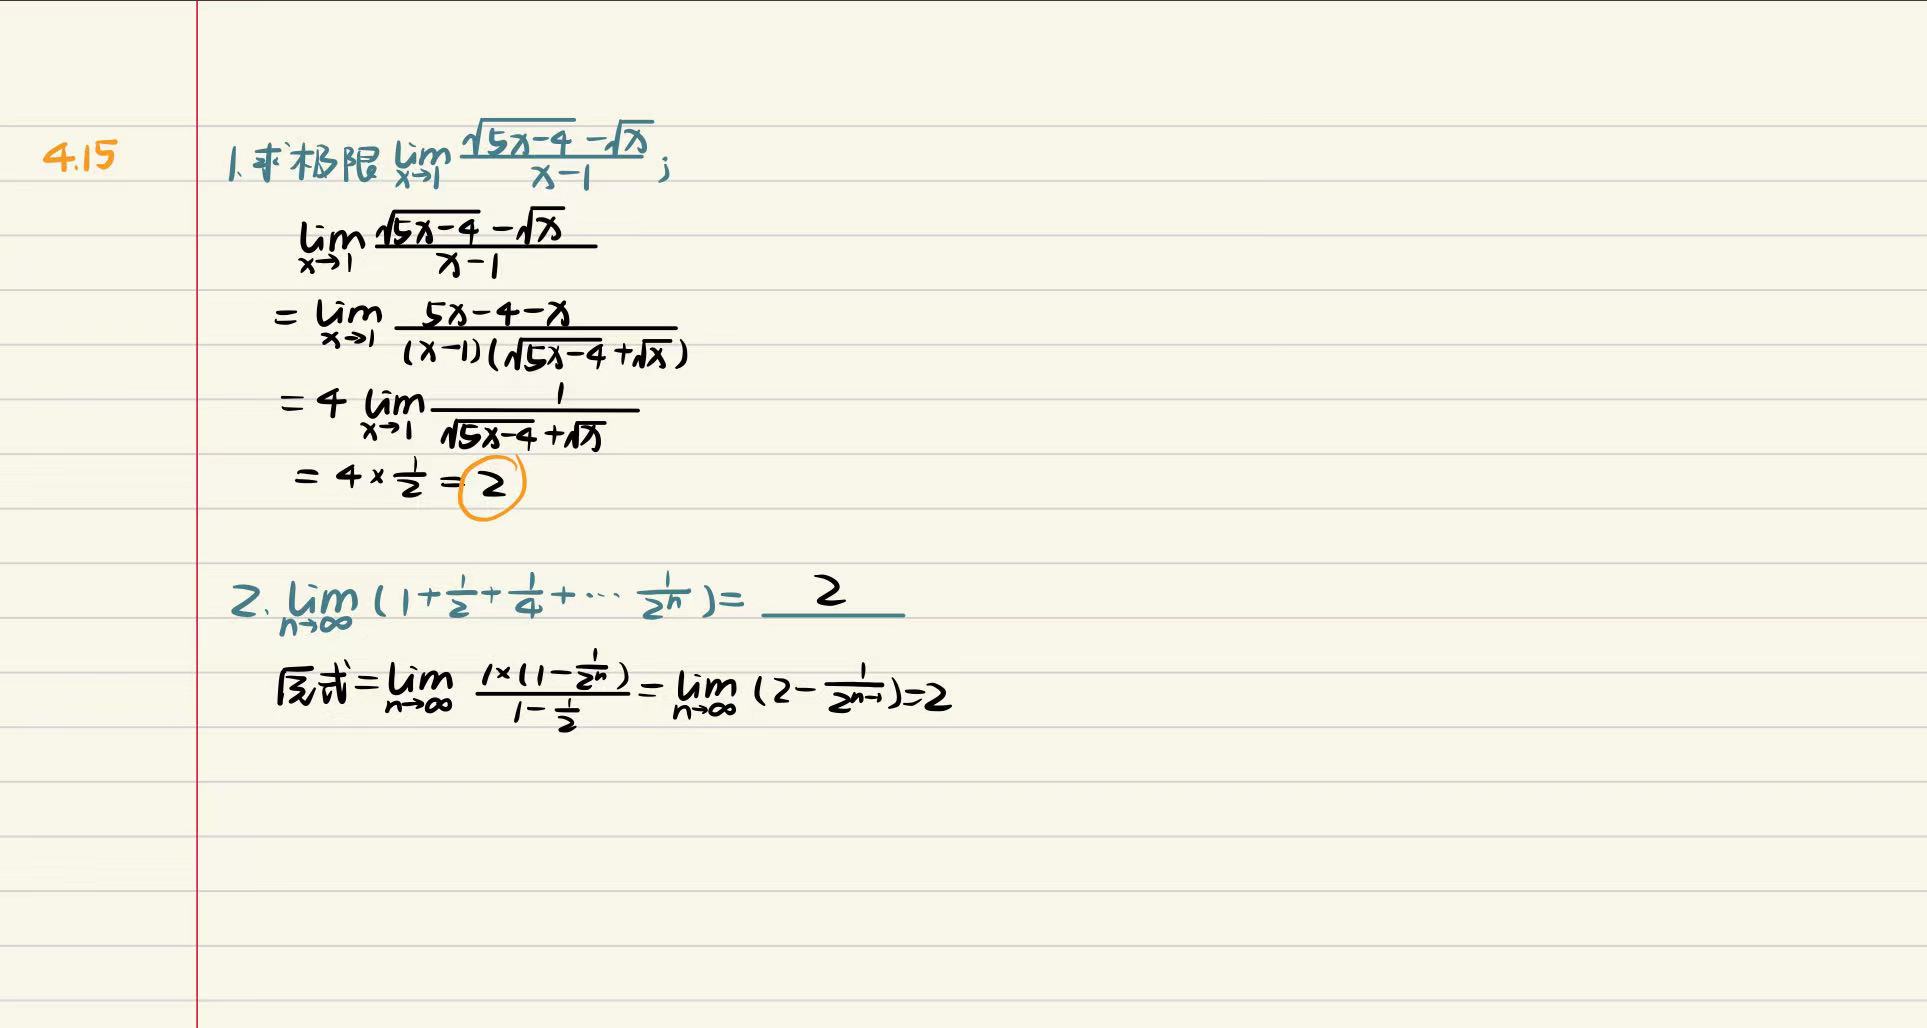 4.15
1.求极限 lim x→1 (√(5x-4) - √x)/(x-1);
lim x→1 (√(5x-4) - √x)/(x-1)
= lim x→1 (5x-4-x)/((x-1)(√(5x-4)+√x))
= 4 lim x→1 1/(√(5x-4)+√x)
= 4 × 1/2 = 2
2. lim n→∞ (1+1/2+1/4+⋯ 1/2^n)= 2
原式= lim n→∞ (1×(1-1/2^n))/(1-1/2) = lim n→∞ (2-1/2^(n-1))=2